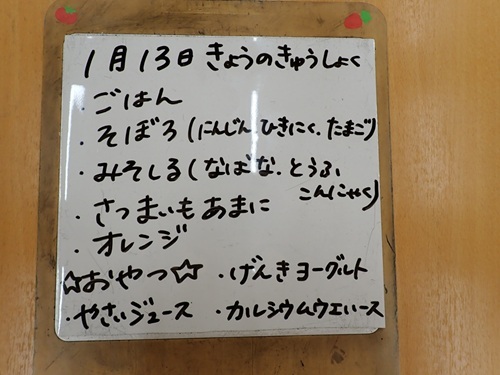 1月13日 きょうのきゅうしょく
・ごはん
・そぼろ(にんじん.ひきにく.たまご)
・みそしる(なばな.とうふ
こんにゃく)
・さつまいもあまに
・オレンジ
☆おやつ☆ ・げんきヨーグルト
・やさいジュース ・カルシウムウエハース